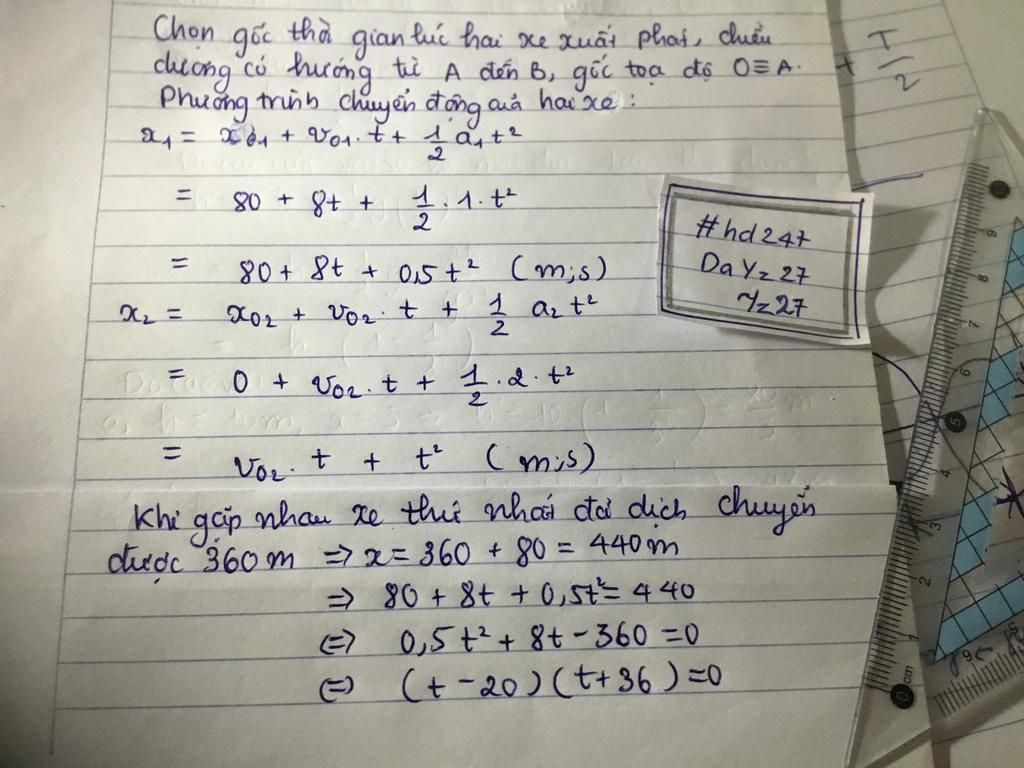 Chọn gốc thời gian lúc hai xe xuất phát, chiều
dương có hướng từ A đến B, gốc toạ độ O≡A.
Phương trình chuyển động của hai xe:
x₁ = x₀₁ + v₀₁.t + 1/2 a₁t²
= 80 + 8t + 1/2.1.t²
= 80 + 8t + 0,5t² (m;s)
x₂ = x₀₂ + v₀₂.t + 1/2 a₂t²
= 0 + v₀₂.t + 1/2.2.t²
= v₀₂.t + t² (m;s)
Khi gặp nhau xe thứ nhất đã dịch chuyển
được 360m => x = 360 + 80 = 440m
=> 80 + 8t + 0,5t² = 440
<=> 0,5t² + 8t - 360 = 0
<=> (t - 20)(t + 36) = 0
#hd247
DaYz27
Yz27
+ T/2
9
8
7
6
5
4
3
2
1
0 cm